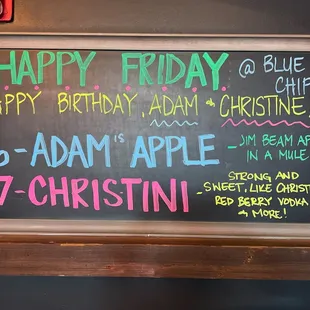 HAPPY FRIDAY @ BLUE CHIP
HAPPY BIRTHDAY, ADAM & CHRISTINE
- ADAM'S APPLE - JIM BEAM AP
IN A MULE
7 - CHRISTINI - STRONG AND
SWEET, LIKE CHRISTI
RED BERRY VODKA
& MORE!